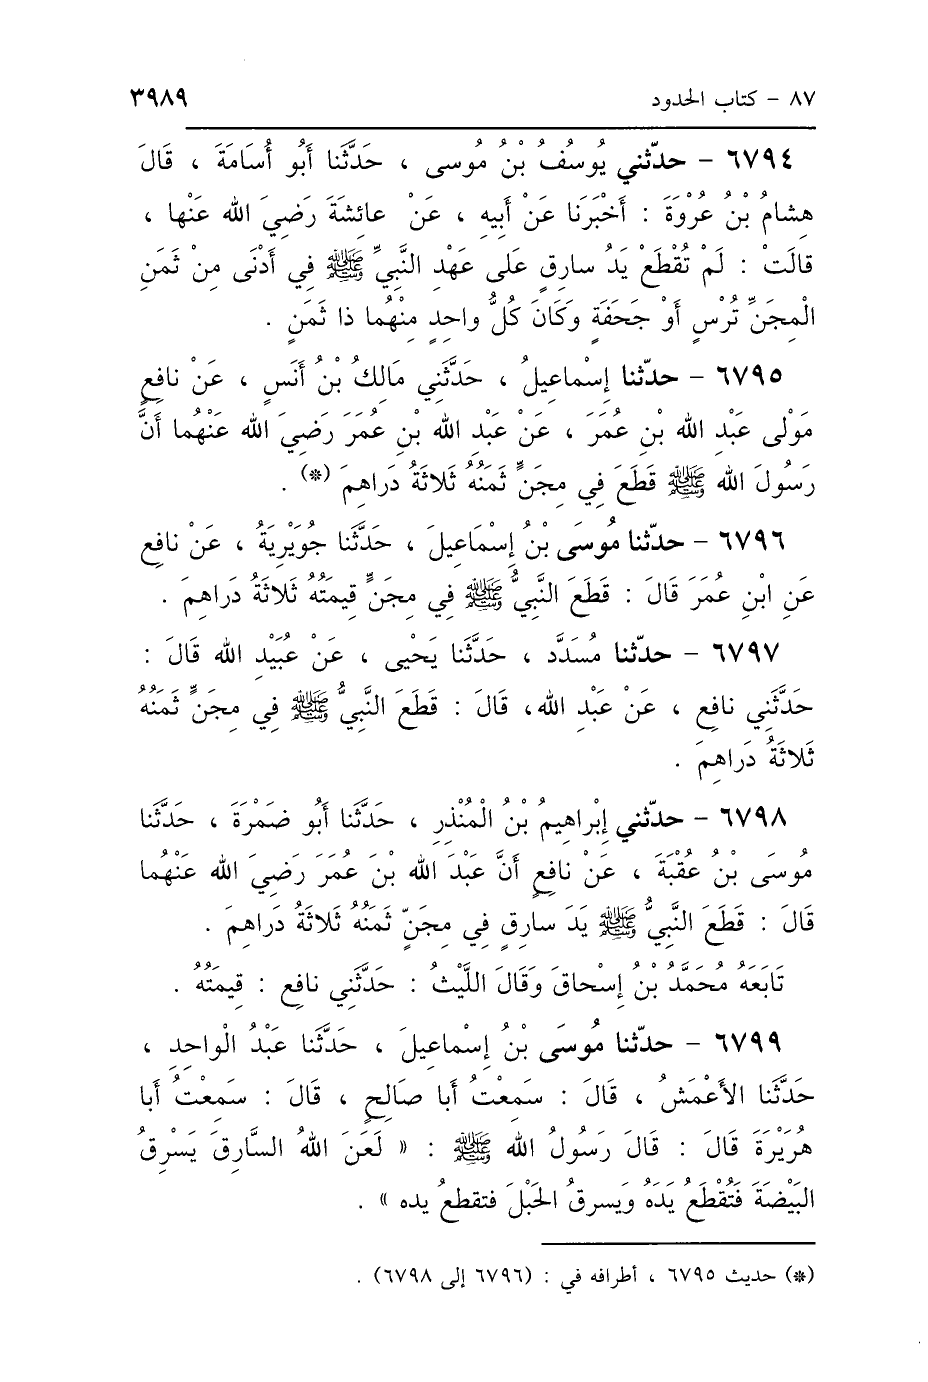 ٨٧ - كتاب الحدود ٣٩٨٩
٦٧٩٤ - حدّثني يُوسُفُ بْنُ مُوسى ، حَدَّثَنا أَبُو أُسَامَةَ ، قَالَ
هِشامُ بْنُ عُرْوَةَ : أَخْبَرَنا عَنْ أَبِيهِ ، عَنْ عائِشَةَ رَضِيَ الله عَنْها ،
قالَتْ : لَمْ تُقْطَعْ يَدُ سارِقٍ عَلَى عَهْدِ النَّبِيِّ ﷺ فِي أَدْنَى مِنْ ثَمَنِ
الْمِجَنِّ تُرْسٍ أَوْ جَحَفَةٍ وَكَانَ كُلُّ واحِدٍ مِنْهُما ذا ثَمَنٍ .
٦٧٩٥ - حدّثنا إِسْماعِيلُ ، حَدَّثَنِي مَالِكُ بْنُ أَنَسٍ ، عَنْ نافِعٍ
مَوْلى عَبْدِ الله بْنِ عُمَرَ ، عَنْ عَبْدِ الله بْنِ عُمَرَ رَضِيَ الله عَنْهُما أَنَّ
رَسُولَ الله ﷺ قَطَعَ فِي مِجَنٍّ ثَمَنُهُ ثَلاثَةُ دَراهِمَ (*) .
٦٧٩٦ - حدّثنا مُوسَى بْنُ إِسْمَاعِيلَ ، حَدَّثَنا جُوَيْرِيَةُ ، عَنْ نافِعٍ
عَنِ ابْنِ عُمَرَ قَالَ : قَطَعَ النَّبِيُّ ﷺ فِي مِجَنٍّ قِيمَتُهُ ثَلاثَةُ دَراهِمَ .
٦٧٩٧ - حدّثنا مُسَدَّد ، حَدَّثَنا يَحْيى ، عَنْ عُبَيْدِ الله قَالَ :
حَدَّثَنِي نافِع ، عَنْ عَبْدِ الله، قَالَ : قَطَعَ النَّبِيُّ ﷺ فِي مِجَنٍّ ثَمَنُهُ
ثَلاثَةُ دَراهِمَ .
٦٧٩٨ - حدّثني إِبْراهِيمُ بْنُ الْمُنْذِرِ ، حَدَّثَنا أَبُو ضَمْرَةَ ، حَدَّثَنا
مُوسَى بْنُ عُقْبَةَ ، عَنْ نافِعٍ أَنَّ عَبْدَ الله بْنَ عُمَرَ رَضِيَ الله عَنْهُما
قَالَ : قَطَعَ النَّبِيُّ ﷺ يَدَ سارِقٍ فِي مِجَنّ ثَمَنُهُ ثَلاثَةُ دَراهِمَ .
تَابَعَهُ مُحَمَّدُ بْنُ إِسْحاقَ وَقَالَ اللَّيْثُ : حَدَّثَنِي نافِع : قِيمَتُهُ .
٦٧٩٩ - حدّثنا مُوسَى بْنُ إِسْماعِيلَ ، حَدَّثَنا عَبْدُ الْواحِدِ ،
حَدَّثَنا الأَعْمَشُ ، قَالَ : سَمِعْتُ أَبا صَالِحٍ ، قَالَ : سَمِعْتُ أَبا
هُرَيْرَةَ قَالَ : قَالَ رَسُولُ الله ﷺ : « لَعَنَ اللهُ السَّارِقَ يَسْرِقُ
البَيْضَةَ فَتُقْطَعُ يَدَهُ وَيَسرِقُ الحَبْلَ فتقطعُ يده » .
(*) حديث ٦٧٩٥ ، أطرافه في : (٦٧٩٦ إلى ٦٧٩٨) .